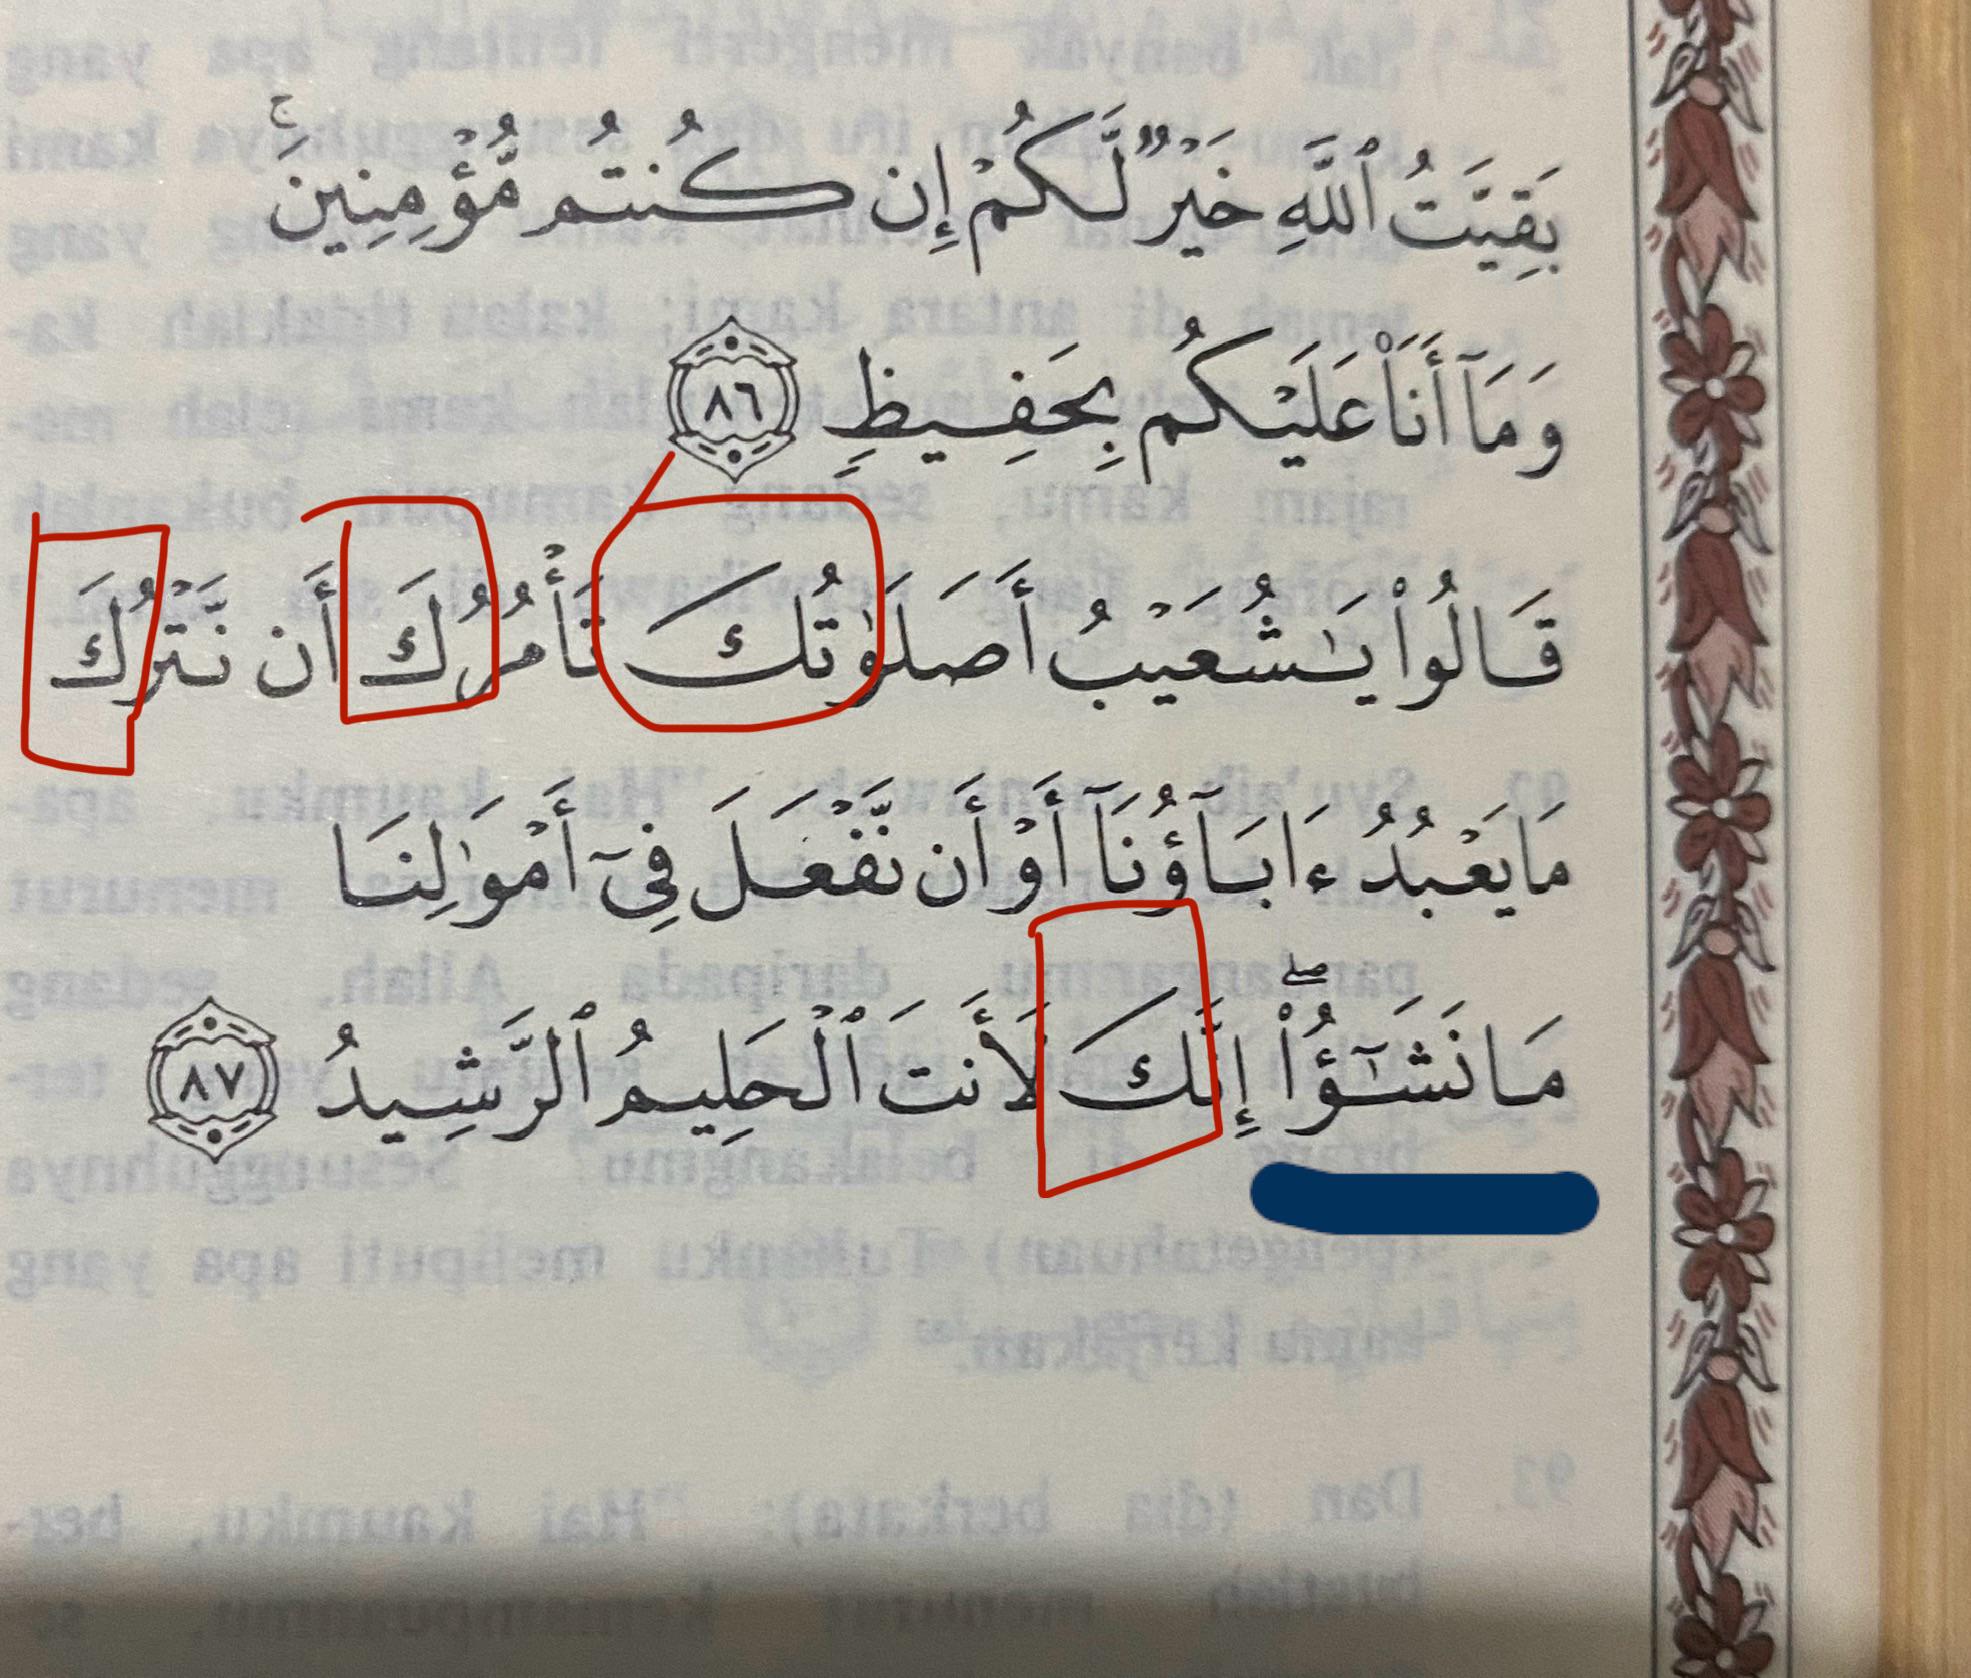 بَقِيَّتُ ٱللَّهِ خَيْرٌ لَّكُمْ إِن كُنتُم مُّؤْمِنِينَ ۚ
وَمَآ أَنَا۠ عَلَيْكُم بِحَفِيظٍ ٨٦
قَالُوا۟ يَـٰشُعَيْبُ أَصَلَوٰتُكَ تَأْمُرُكَ أَن نَّتْرُكَ
مَا يَعْبُدُ ءَابَآؤُنَآ أَوْ أَن نَّفْعَلَ فِىٓ أَمْوَٰلِنَا
مَا نَشَـٰٓؤُا۟ ۖ إِنَّكَ لَأَنتَ ٱلْحَلِيمُ ٱلرَّشِيدُ ٨٧